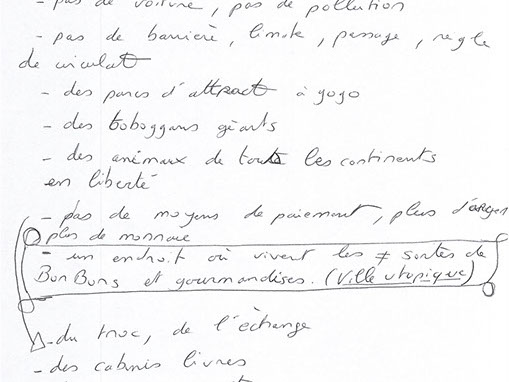 - pas de voiture, pas de pollution
- pas de barrière, limite, passage, regle
de circulat
- des parcs d'attract à gogo
- des toboggans géants
- des animaux de touts les continents
en liberté
- pas de moyens de paiement, plus d'argent
plus de monnaie
- un endroit où vivent les ≠ sortes de
BonBons et gourmandises. (Ville utopique)
- du troc, de l'échange
- des cabanis livres